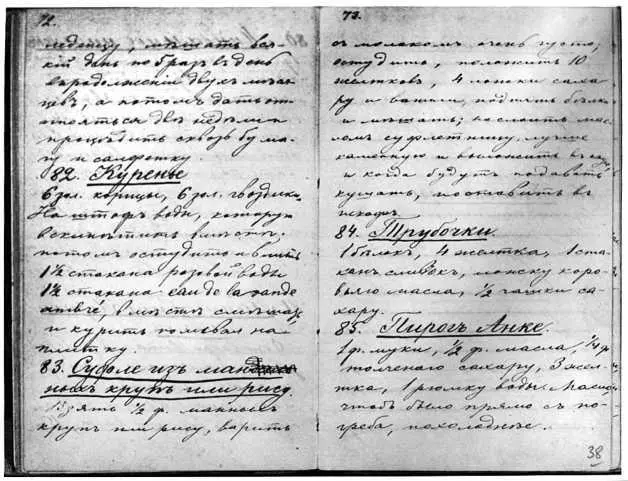 72.
леденцу, мѣшать вся-
кій день по 6 разъ въ день
въ продолженіи двухъ мѣся-
цевъ, а потомъ дать от-
стояться двѣ недѣли и
процѣдить сквозь бума-
гу и салфетку.
82. Куренье
6 зол. корицы, 6 зол. гвоздики
На штофъ воды, которую
вскипятить вмѣстѣ,
потомъ остудить и влить
1½ стакана розовой воды
1½ стакана eau de lavande
ambré, вмѣстѣ смѣшать
и курить поливая на
плитку.
83. Суфле изъ ман
ныхъ крупъ или рису.
Взять ½ ф. манныхъ
крупъ или рису, варить
73.
съ молокомъ очень густо;
остудить, положить 10
желтковъ, 4 ложки саха-
ру и ванили, поднять бѣлки
и мѣшать; маслить мас-
ломъ суфлетницу, лучше
каменную и выложить въ нее,
и когда будутъ подавать
кушать, поставить въ
шкафъ.
84. Трубочки.
1 бѣлокъ, 4 желтка, 1 ста-
канъ сливокъ, ложку коро-
вьяго масла, ½ чашки са-
хару.
85. Пирогъ Анке.
1 ф. муки, ½ ф. масла, ¼ ф
толченаго сахару, 3 жел-
тка, 1 рюмку воды. Масло,
чтобъ было прямо съ по-
греба, похолоднѣе.
38